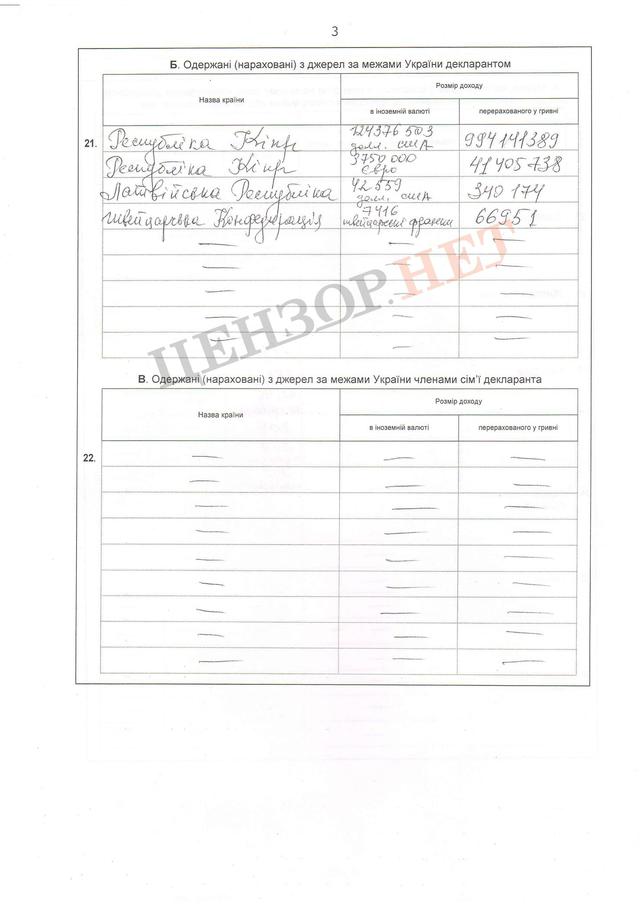 3
Б. Одержані (нараховані) з джерел за межами України декларантом
Назва країни
Розмір доходу
в іноземній валюті
перерахованого у гривні
21.
Республіка Кіпр
124376503
долл. США
994141389
Республіка Кіпр
3750000
Євро
41405738
Латвійська Республіка
42559
долл. США
340174
Швейцарська Конфедерація
7416
швейцарські франки
66951
ЦЕНЗОР.НЕТ
В. Одержані (нараховані) з джерел за межами України членами сім'ї декларанта
Назва країни
Розмір доходу
в іноземній валюті
перерахованого у гривні
22.